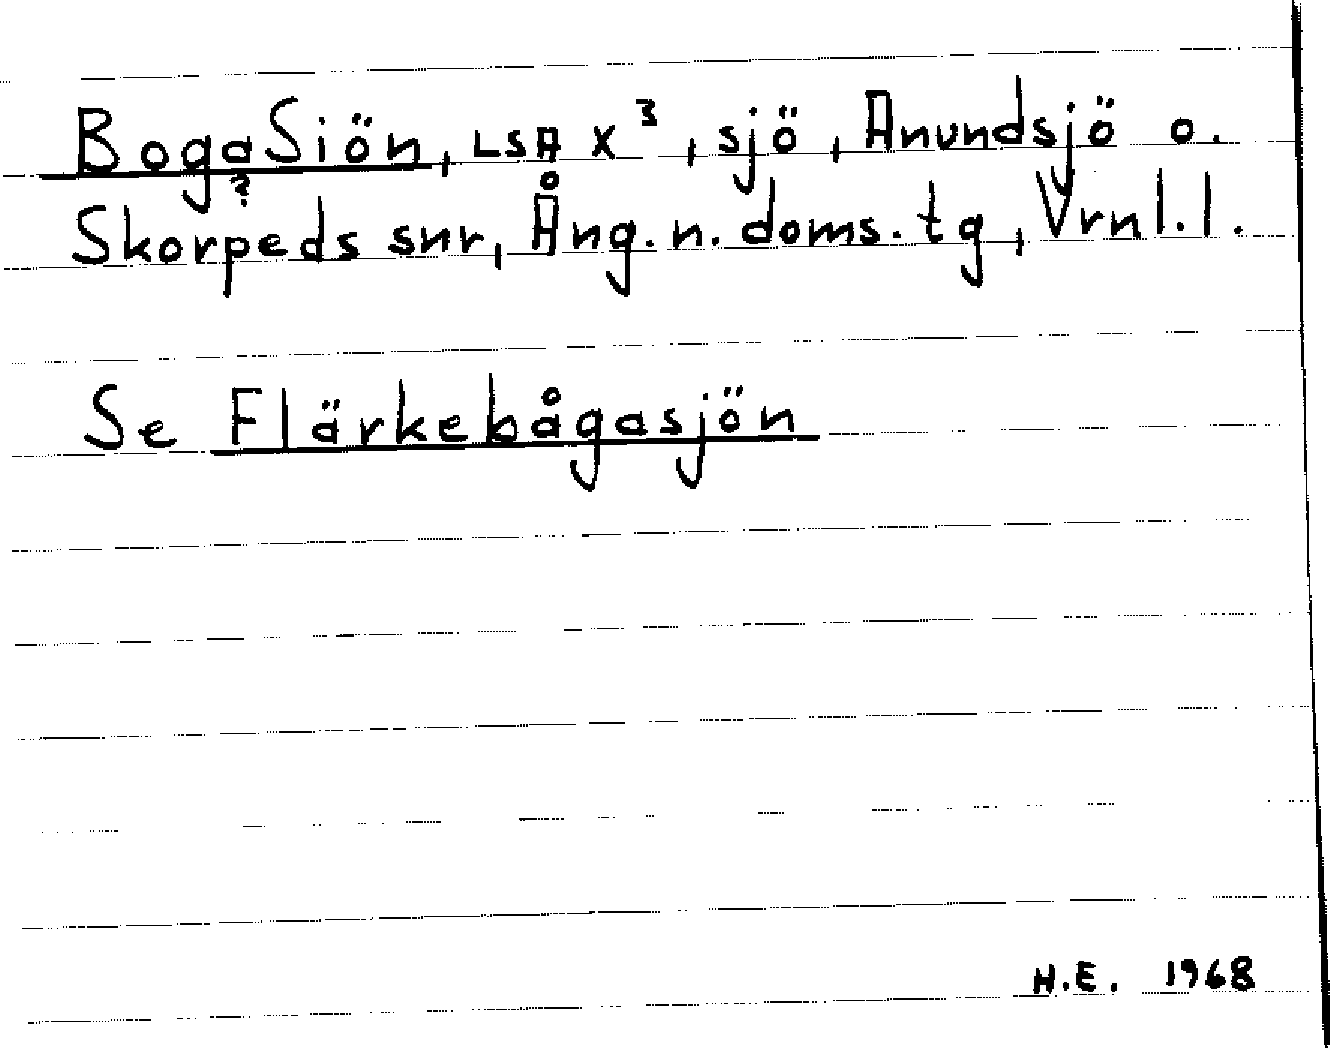 BogaSiön, LSA X³, sjö, Anundsjö o.
?
Skorpeds snr, Ång. n. doms. tg, Vrnl. l.
Se Flärkebågasjön
H.E. 1968